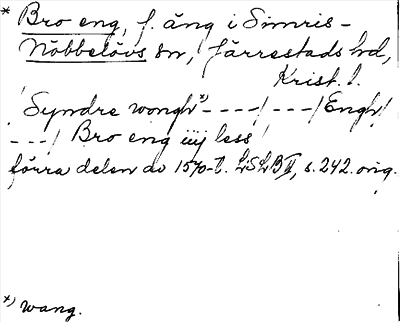 * Bro eng, f. äng i Simris-
Nöbbelövs sn, Järrestads hd,
Krist. l.
"Syndre wongh*) - - - -/ - - -/ Engh/
- - -/ Bro eng iiij less"
förra delen av 1570-t. LSLB II, s. 242. orig.
*) wang.